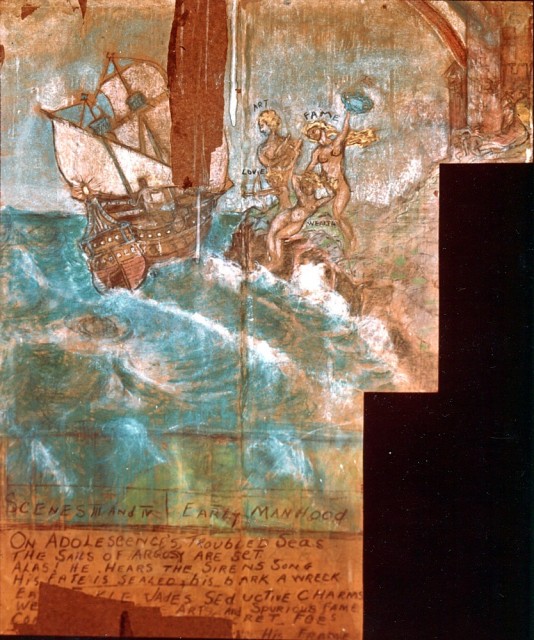 ART
FAME
LOVE
WEALTH
SCENES III AND IV EARLY MANHOOD
ON ADOLESCENCE'S TROUBLED SEAS
THE SAILS OF ARGOSY ARE SET
ALAS! HE HEARS THE SIRENS SONG
HIS FATE IS SEALED, HIS BARK A WRECK
SEDUCTIVE CHARMS
WE ART AND SPURIOUS FAME
FOES
HE